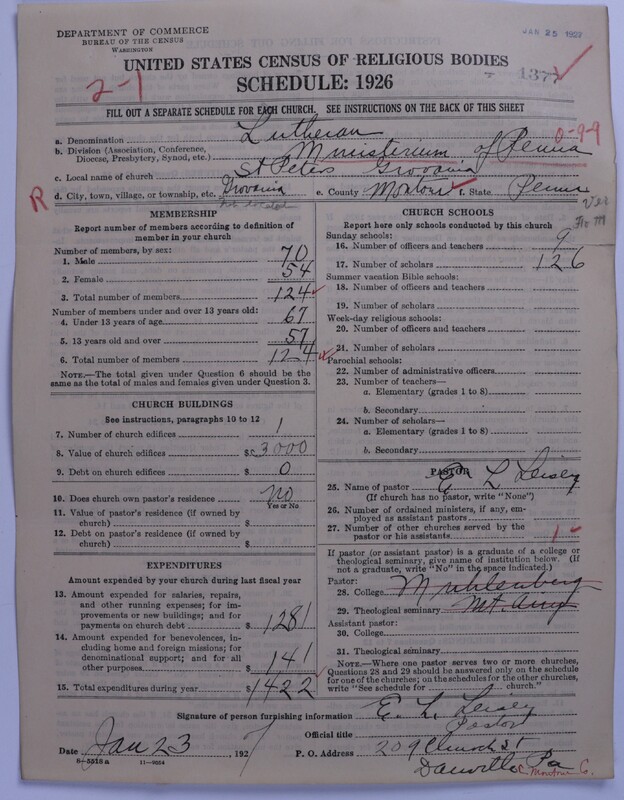 DEPARTMENT OF COMMERCE
BUREAU OF THE CENSUS
WASHINGTON
JAN 25 1927
UNITED STATES CENSUS OF RELIGIOUS BODIES
SCHEDULE: 1926
2-1
137
FILL OUT A SEPARATE SCHEDULE FOR EACH CHURCH. SEE INSTRUCTIONS ON THE BACK OF THIS SHEET
a. Denomination Lutheran
0-9-9
b. Division (Association, Conference, Diocese, Presbytery, Synod, etc.) Ministerium of Penna
c. Local name of church St Peters Grovania
R
d. City, town, village, or township, etc. Grovania e. County Montour f. State Penna
not located
Ver
MEMBERSHIP
Report number of members according to definition of member in your church
Number of members, by sex:
1. Male 70
2. Female 54
3. Total number of members 124
Number of members under and over 13 years old:
4. Under 13 years of age 67
5. 13 years old and over 57
6. Total number of members 124
NOTE.—The total given under Question 6 should be the same as the total of males and females given under Question 3.
CHURCH BUILDINGS
See instructions, paragraphs 10 to 12
7. Number of church edifices 1
8. Value of church edifices $ 3000
9. Debt on church edifices $ 0
10. Does church own pastor's residence no
Yes or No
11. Value of pastor's residence (if owned by church) $
12. Debt on pastor's residence (if owned by church) $
EXPENDITURES
Amount expended by your church during last fiscal year
13. Amount expended for salaries, repairs, and other running expenses; for improvements or new buildings; and for payments on church debt $ 1281
14. Amount expended for benevolences, including home and foreign missions; for denominational support; and for all other purposes $ 141
15. Total expenditures during year $ 1422
CHURCH SCHOOLS
Report here only schools conducted by this church
Sunday schools:
16. Number of officers and teachers 9
17. Number of scholars 126
Summer vacation Bible schools:
18. Number of officers and teachers
19. Number of scholars
Week-day religious schools:
20. Number of officers and teachers
21. Number of scholars
Parochial schools:
22. Number of administrative officers
23. Number of teachers—
a. Elementary (grades 1 to 8)
b. Secondary
24. Number of scholars—
a. Elementary (grades 1 to 8)
b. Secondary
PASTOR
25. Name of pastor E L Leisey
(If church has no pastor, write "None")
26. Number of ordained ministers, if any, employed as assistant pastors
27. Number of other churches served by the pastor or his assistants 1
If pastor (or assistant pastor) is a graduate of a college or theological seminary, give name of institution below. (If not a graduate, write "No" in the space indicated.)
Pastor:
28. College Muhlenberg
29. Theological seminary Mt Airy
Assistant pastor:
30. College
31. Theological seminary
NOTE.—Where one pastor serves two or more churches, Questions 28 and 29 should be answered only on the schedule for one of the churches; on the schedules for the other churches, write "See schedule for church."
Signature of person furnishing information E. L. Leisey
Official title Pastor
Date Jan 23, 1927 P. O. Address 209 Church St
Danville Pa
C. Montour Co.
8—5518 a 11—9554